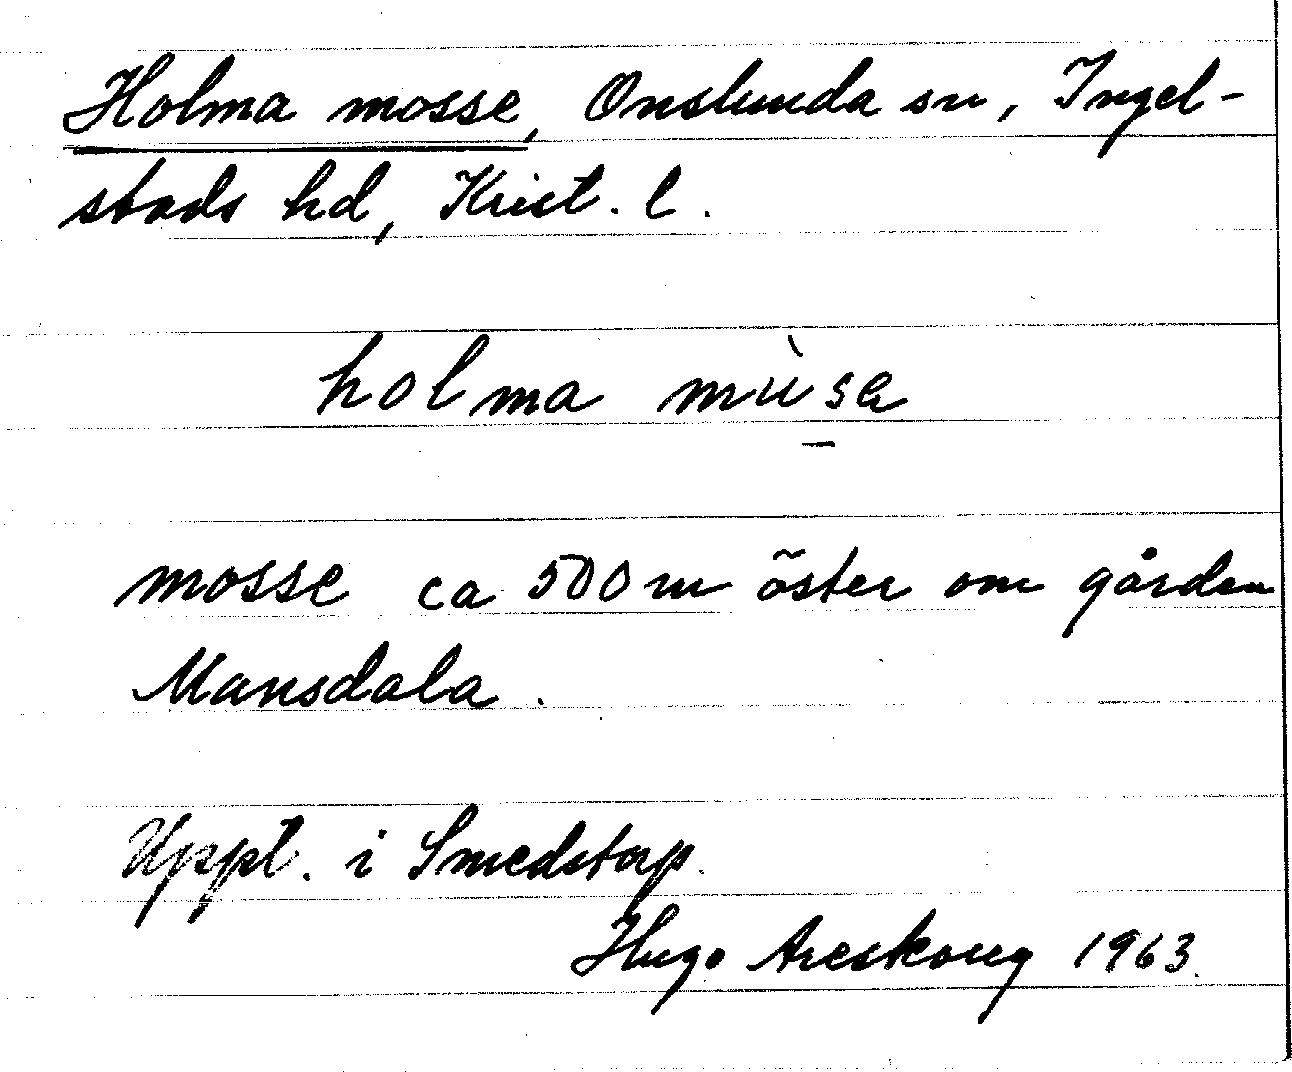 Holma mosse, Onslunda sn, Ingel-
stads hd, Krist. l.
holma mùsa
mosse ca 500 m öster om gården
Mansdala.
Uppt. i Smedstorp.
Hugo Areskoug 1963.